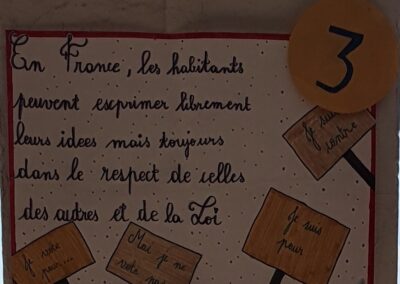 3
En France, les habitants
peuvent exprimer librement
leurs idees mais toujours
dans le respect de celles
des autres et de la Loi
Je suis
contre
Je suis
pour
Je vote
pour...
Moi je ne
vote pas